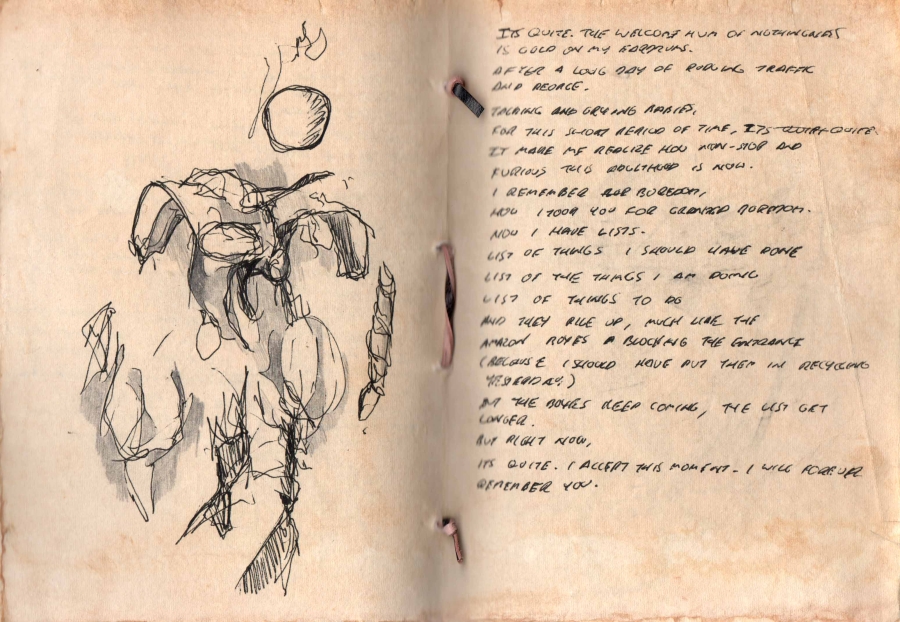 ITS QUITE. THE WELCOME HUM OF NOTHINGNESS
IS GOLD ON MY EARDRUMS.
AFTER A LONG DAY OF RUNNING TRAFFIC
AND PEOPLE.
TALKING AND CRYING BABIES,
FOR THIS SHORT PERIOD OF TIME, ITS QUITE
IT MAKE ME REALIZE HOW NON-STOP AND
FURIOUS THIS ADULTHOOD IS NOW.
I REMEMBER BOREDOM,
HOW I TOOK YOU FOR GRANTED BOREDOM.
NOW I HAVE LISTS.
LIST OF THINGS I SHOULD HAVE DONE
LIST OF THE THINGS I AM DOING
LIST OF THINGS TO DO
AND THEY PILE UP, MUCH LIKE THE
AMAZON BOXES BLOCKING THE ENTRANCE
(BECAUSE I SHOULD HAVE PUT THEM IN RECYCLING
YESTERDAY)
THE BOXES KEEP COMING, THE LIST GET
LONGER.
BUT RIGHT NOW,
ITS QUITE. I ACCEPT THIS MOMENT. I WILL FOREVER
REMEMBER YOU.